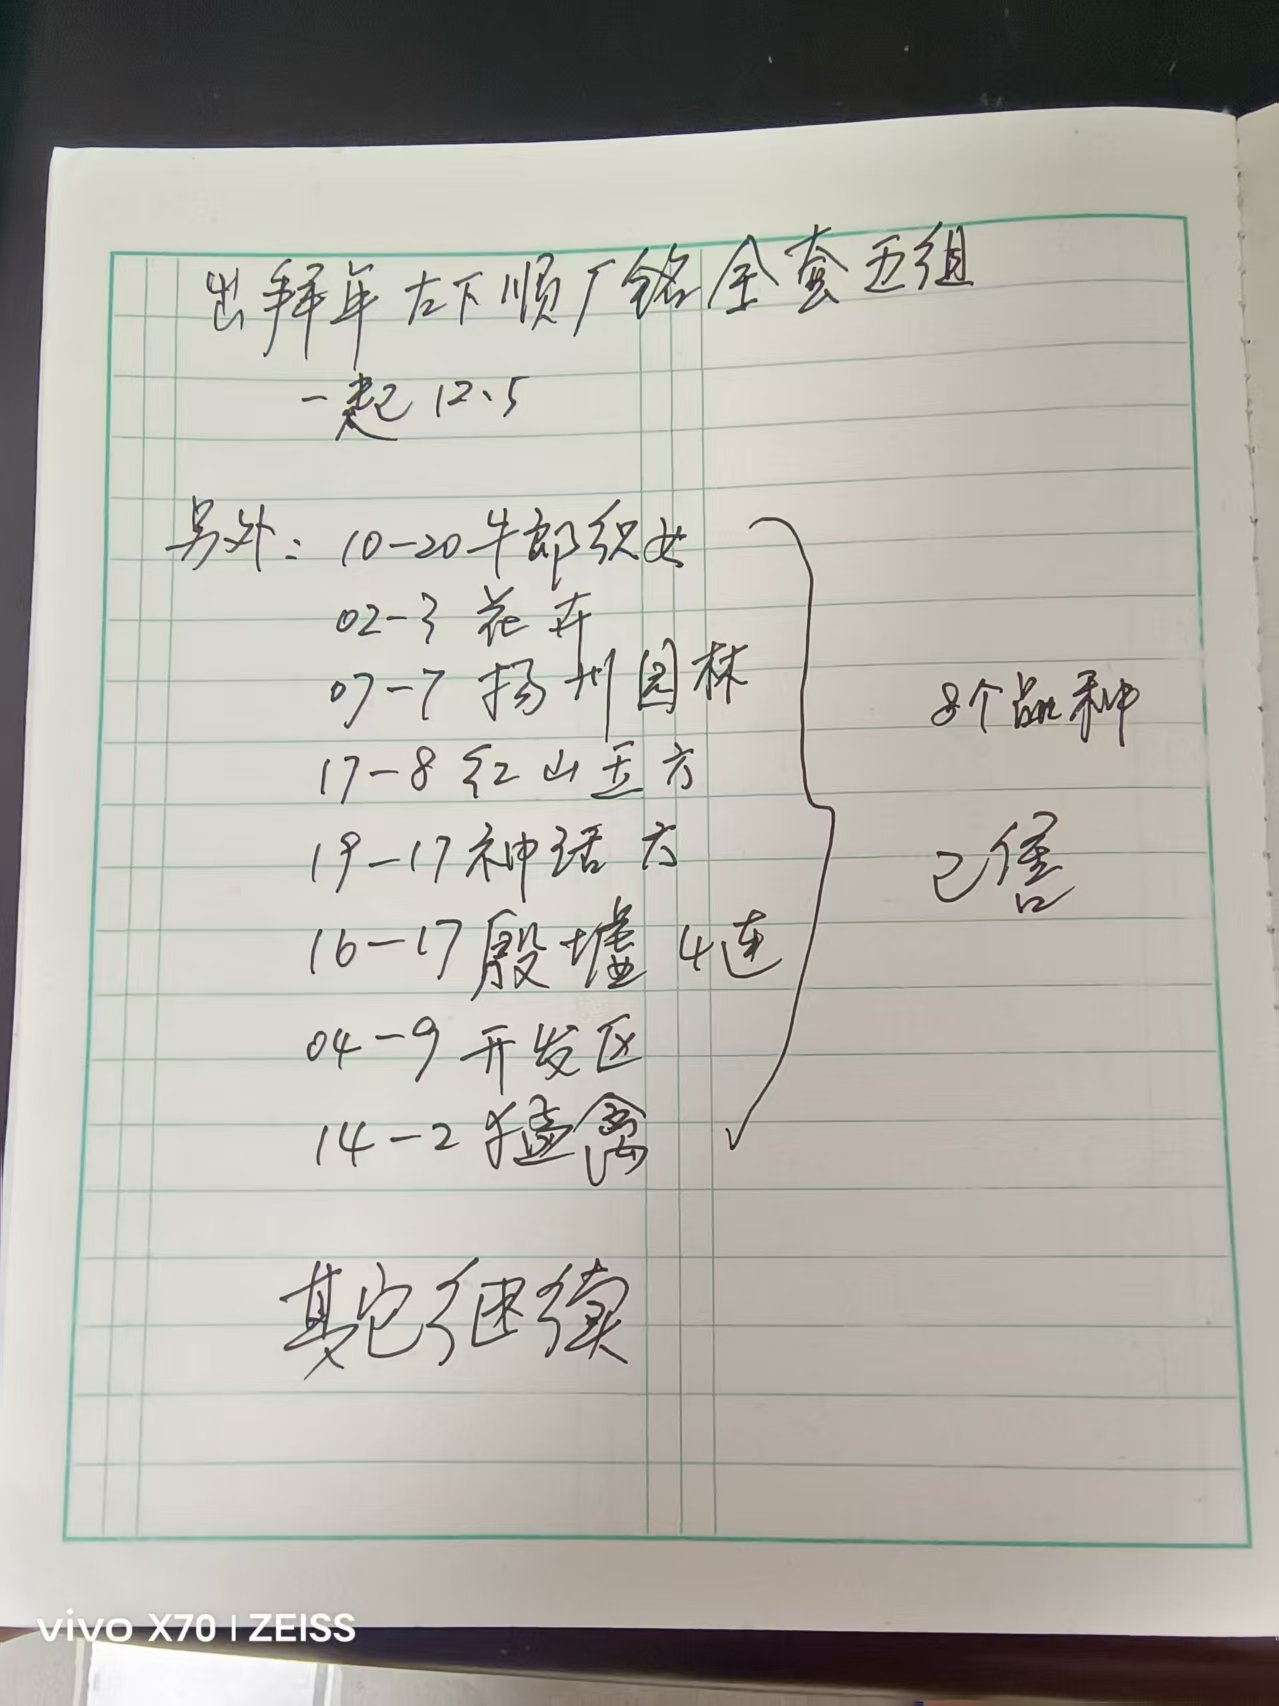 出拜年右下顺厂铭全套五组
一起 12、5
另外：10-20 牛郎织女
02-3 花卉
07-7 扬州园林
17-8 红山五方
19-17 神话六
16-17 殷墟 4连
04-9 开发区
14-2 猛禽
8个品种
已售
其它继续
vivo X70 | ZEISS